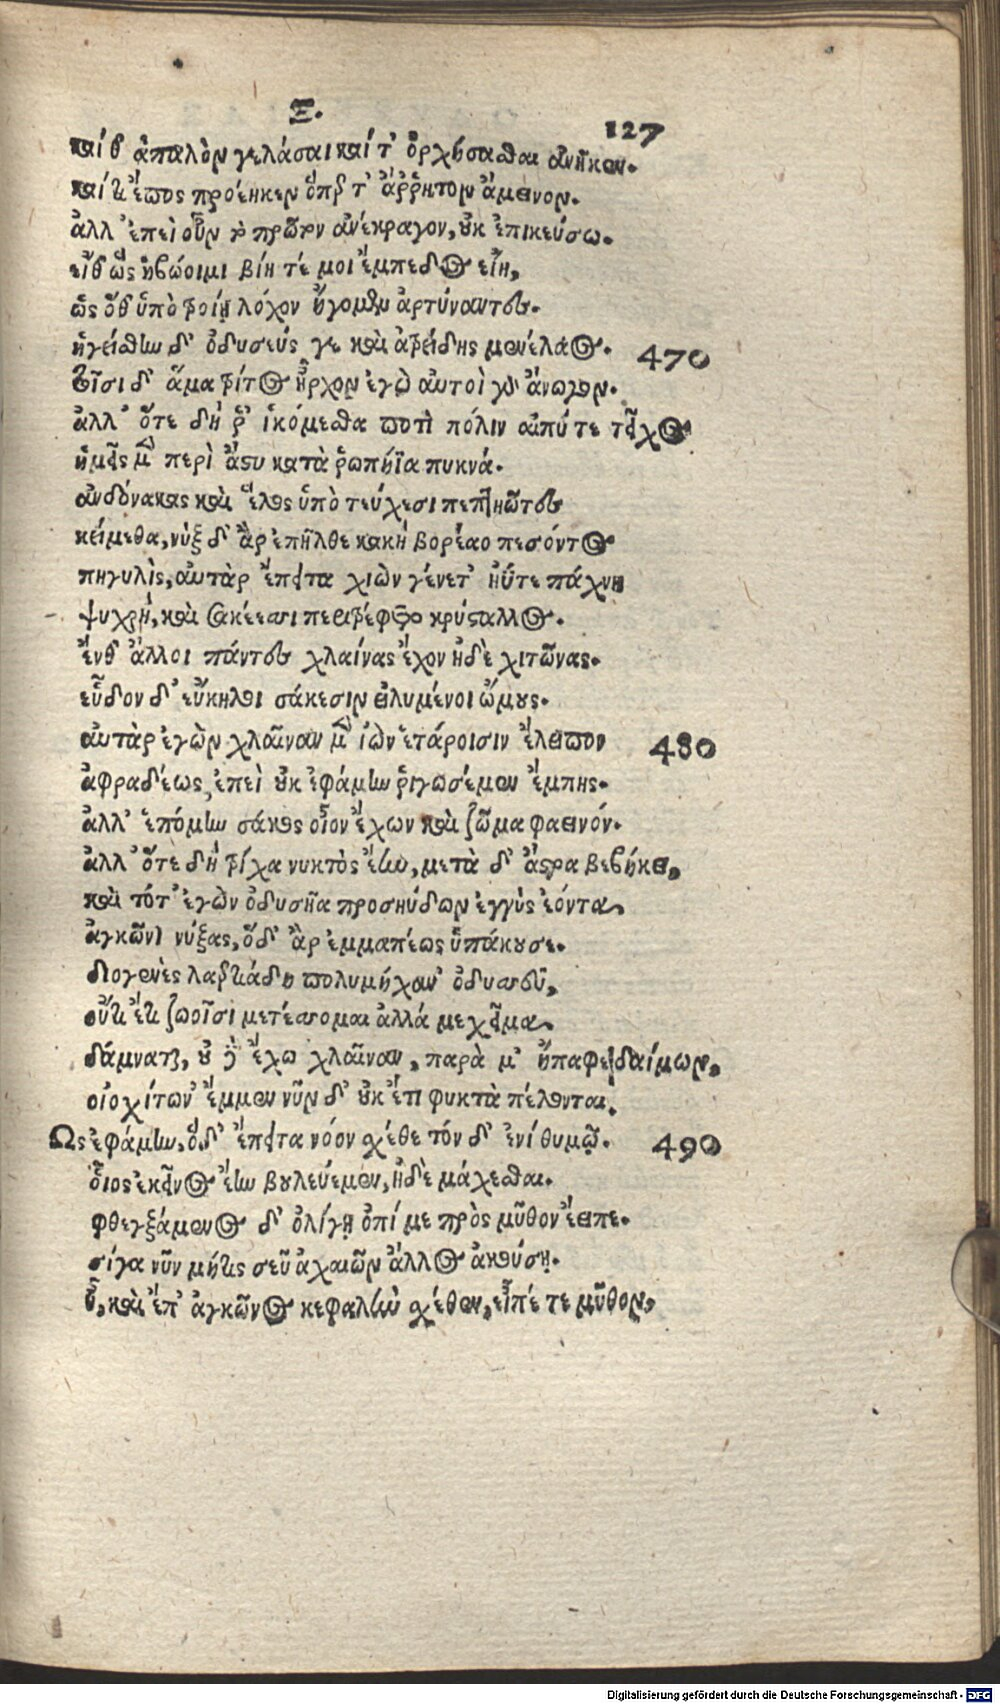 Ξ.
127
καί θ' ἁπαλὸν γελάσαι καί τ' ὀρχήσασθαι ἀνῆκεν.
καί τι ἔπος προέηκεν ὅπερ τ' ἄρρητον ἄμεινον.
ἀλλ' ἐπεὶ οὖν τὸ πρῶτον ἀνέκραγον, οὐκ ἐπικεύσω.
εἴθ' ὣς ἡβώοιμι βίη τέ μοι ἔμπεδος εἴη,
ὣς ὅθ' ὑπὸ τροίῃ λόχον ἤγομεν ἀρτύναντες.
ἡγείσθην δ' ὀδυσεύς γε καὶ ἀτρείδης μενέλαος. 470
τοῖσι δ' ἅμα τρίτος ἦρχον ἐγὼ αὐτοὶ γὰρ ἄνωγον.
ἀλλ' ὅτε δή ῥ' ἱκόμεσθα ποτὶ πόλιν αἰπύ τε τεῖχος
ἡμεῖς μὲν περὶ ἄστυ κατὰ ῥωπήϊα πυκνά.
ἀνδόνακας καὶ ἕλος ὑπὸ τεύχεσι πεπτηῶτες
κείμεθα, νὺξ δ' ἂρ ἐπῆλθε κακὴ βορέαο πεσόντος
πηγυλὶς, αὐτὰρ ἔπειτα χιὼν γένετ' ἠΰτε πάχνη
ψυχρή, καὶ σακέεσσι περιτρέφετο κρύσταλλος.
ἔνθ' ἄλλοι πάντες χλαίνας ἔχον ἠδὲ χιτῶνας.
εὗδον δ' εὔκηλοι σάκεσιν εἰλυμένοι ὤμους.
αὐτὰρ ἐγὼν χλαῖναν μὲν ἰὼν ἑτάροισιν ἔλειπον 480
ἀφραδέως, ἐπεὶ οὐκ ἐφάμην ῥιγωσέμεν ἔμπης.
ἀλλ' ἑπόμην σάκος οἶον ἔχων καὶ ζῶμα φαεινόν.
ἀλλ' ὅτε δὴ τρίχα νυκτὸς ἔην, μετὰ δ' ἄστρα βεβήκει,
καὶ τότ' ἐγὼν ὀδυσῆα προσηύδων ἐγγὺς ἐόντα,
ἀγκῶνι νύξας, ὅδ' ἂρ ἐμμαπέως ὑπάκουσε.
διογενὲς λαερτιάδη πολυμήχαν' ὀδυσσεῦ,
οὔτι ἔτι ζωοῖσι μετέσσομαι ἀλλά με χεῖμα.
δάμναται, οὐ γὰρ ἔχω χλαῖναν, παρὰ μ' ἤπαφε δαίμων,
οἰοχίτων' ἔμμεν νῦν δ' οὐκ ἔτι φυκτὰ πέλονται.
Ως ἐφάμην, ὅδ' ἔπειτα νόον σχέθε τόν δ' ἐνί θυμῷ. 490
οἷος ἐκεῖνος ἔην βουλεύεμεν, ἠδὲ μάχεσθαι.
φθεγξάμενος δ' ὀλίγῃ ὀπί με πρὸς μῦθον ἔειπε.
σίγα νῦν μήτις σεῦ ἀχαιῶν ἄλλος ἀκούσῃ.
ἦ, καὶ ἐπ' ἀγκῶνος κεφαλὴν σχέθεν, εἶπέ τε μῦθον,
Digitalisierung gefördert durch die Deutsche Forschungsgemeinschaft - DFG